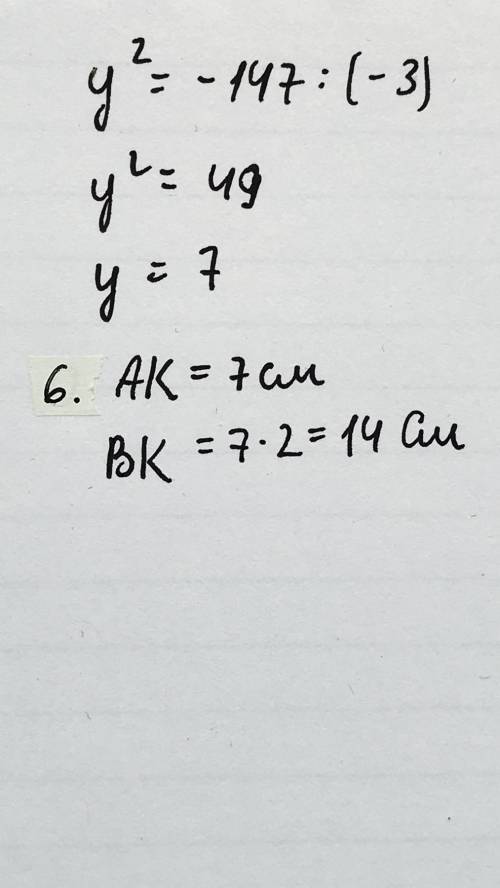 y² = -147 : (-3)
y² = 49
y = 7
6. AK = 7 см
BK = 7 · 2 = 14 см